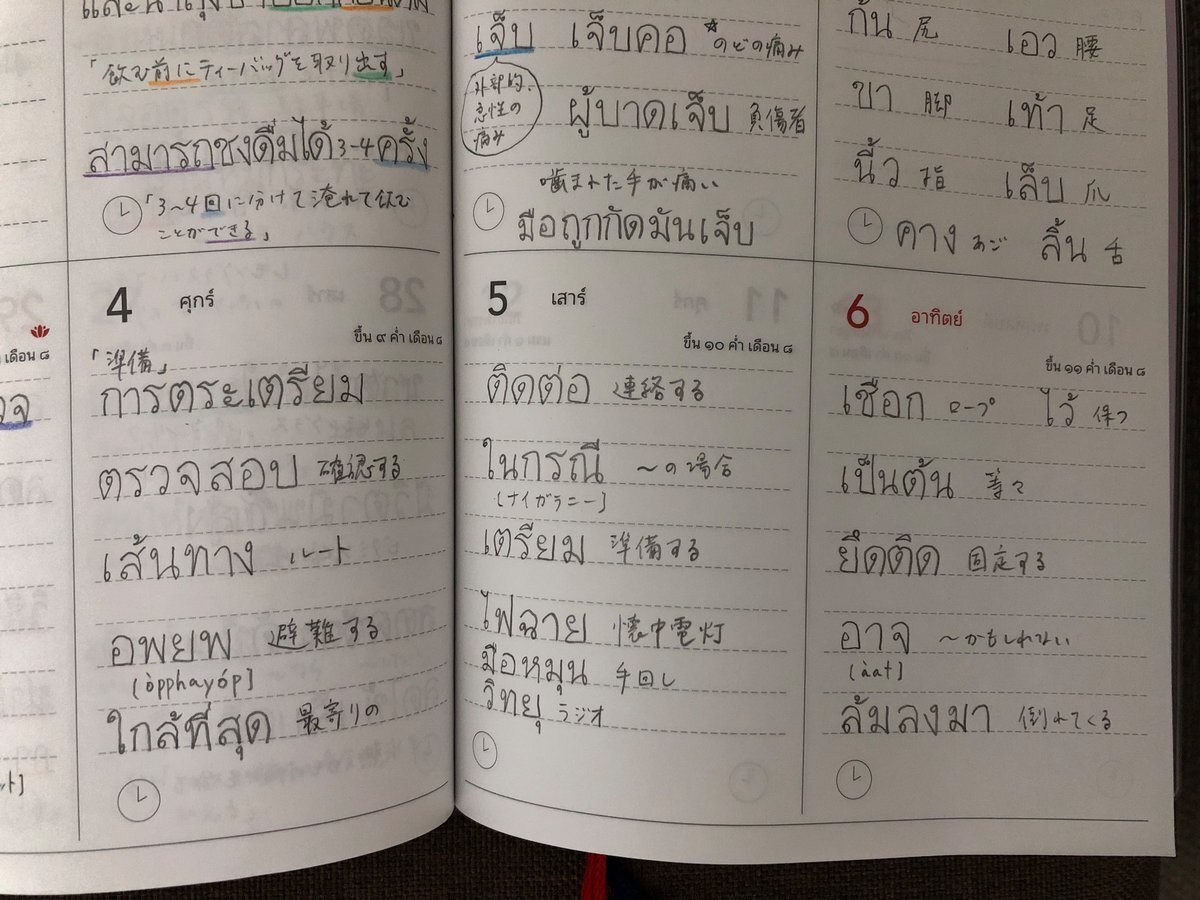 「飲む前にティーバッグを取り出す」
สามารถชงดื่มได้ 3-4 ครั้ง
「3〜4回に分けて淹れて飲む
ことができる」
4 ศุกร์
ขึ้น ๙ ค่ำ เดือน ๘
「準備」
การตระเตรียม
ตรวจสอบ 確認する
เส้นทาง ルート
อพยพ 避難する
[òpphayóp]
ใกล้ที่สุด 最寄りの
เจ็บ เจ็บคอ ☆のどの痛み
外部的、
急性の
痛み
ผู้บาดเจ็บ 負傷者
噛まれた手が痛い
มือถูกกัดมันเจ็บ
5 เสาร์
ขึ้น ๑๐ ค่ำ เดือน ๘
ติดต่อ 連絡する
ในกรณี 〜の場合
[ナイガラニー]
เตรียม 準備する
ไฟฉาย 懐中電灯
มือหมุน 手回し
วิทยุ ラジオ
ก้น 尻 เอว 腰
ขา 脚 เท้า 足
นิ้ว 指 เล็บ 爪
คาง あご ลิ้น 舌
6 อาทิตย์
ขึ้น ๑๑ ค่ำ เดือน ๘
เชือก ロープ ไว้ 保つ
เป็นต้น 等々
ยึดติด 固定する
อาจ 〜かもしれない
[àat]
ล้มลงมา 倒れてくる
เดือน ๘